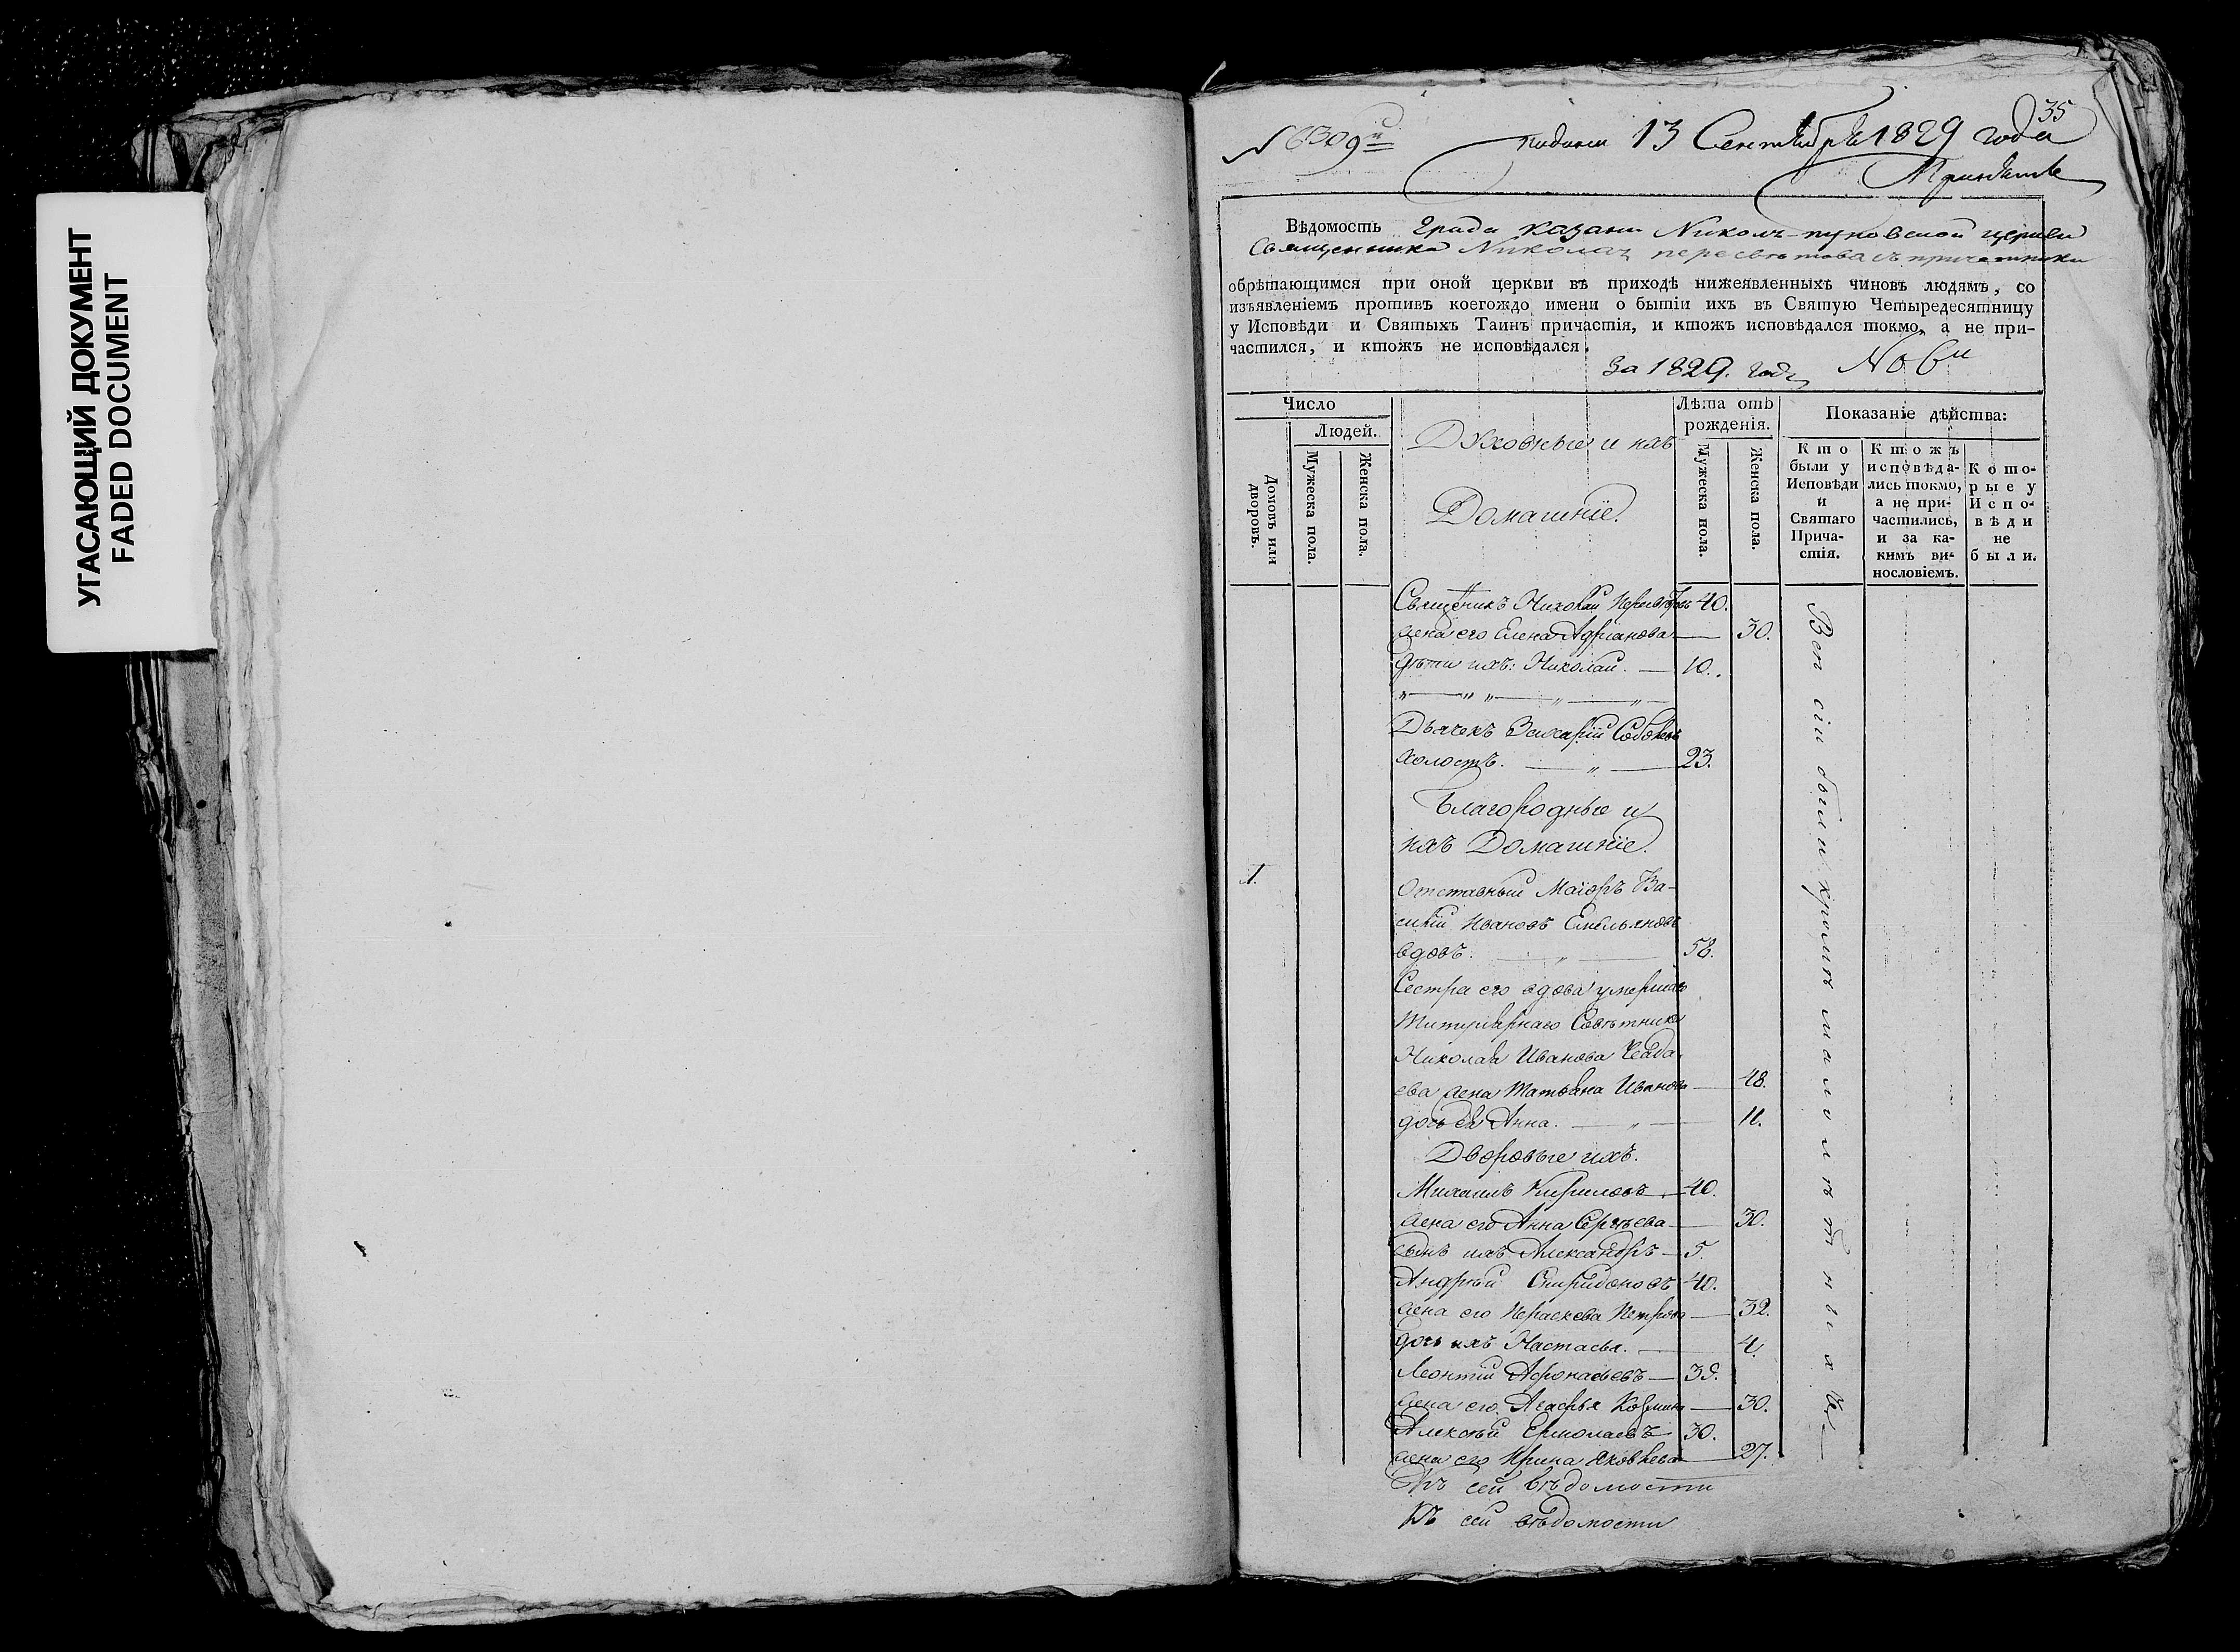 УГАСАЮЩИЙ ДОКУМЕНТ
FADED DOCUMENT
35
N 6309й
подана 13 Сентября 1829 года
Вѣдомость града казани Николо-
церкви
Священника Николая пересвѣтова съ причетники
обрѣтающимся при оной церкви въ приходѣ нижеявленныхъ чиновъ людямъ, со
изъявленіемъ противъ коегождо имени о бытіи ихъ въ Святую Четыредесятницу
у Исповѣди и Святыхъ Таинъ причастія, и ктожъ исповѣдался токмо, а не при-
частился, и ктожъ не исповѣдался.
За 1829. годъ
No 6й
Число
Людей.
Домовъ или
дворовъ.
Мужеска пола.
Женска пола.
Духовные и ихъ
Домашніе.
Лѣта отъ
рожденія.
Мужеска пола.
Женска пола.
Показаніе дѣйства:
Кто
были у
Исповѣди
и
Святаго
Прича-
стія.
Ктожъ
исповѣда-
лись токмо,
а не при-
частились,
и за ка-
кимъ ви-
нословіемъ.
Кото-
рые у
Испо-
вѣди
не
были.
Священикъ Николай Пересвѣтовъ 40.
жена его Елена Адріанова — 30.
дѣти ихъ: Николай. — 10.
Дьячекъ Захарій
холостъ. — 23.
Благородные и
ихъ Домашніе.
1.
Отставный Маіоръ Ва-
силій Ивановъ Емельяновъ
вдовъ. — 58.
Сестра его вдова умершаго
Титулярнаго Совѣтника
Николая Иванова Чеада-
ева жена Татьяна Иванова — 48.
дочь ея Анна. — 11.
Дворовые ихъ.
Михаилъ Кириловъ — 40.
жена его Анна Сергѣева — 30.
сынъ ихъ Александръ — 5.
Андрей Спиридоновъ 40.
жена его Параскева Петрова — 32.
дочь ихъ Настасья. — 4.
Леонтій Афонасьевъ — 35.
жена его Агафья Козмина — 30.
Алексѣй Ермолаевъ 30.
жена его Ирина Яковлева — 27.
Всѣ сіи были кромѣ малолѣтныхъ
Къ сей вѣдомости
Къ сей вѣдомости